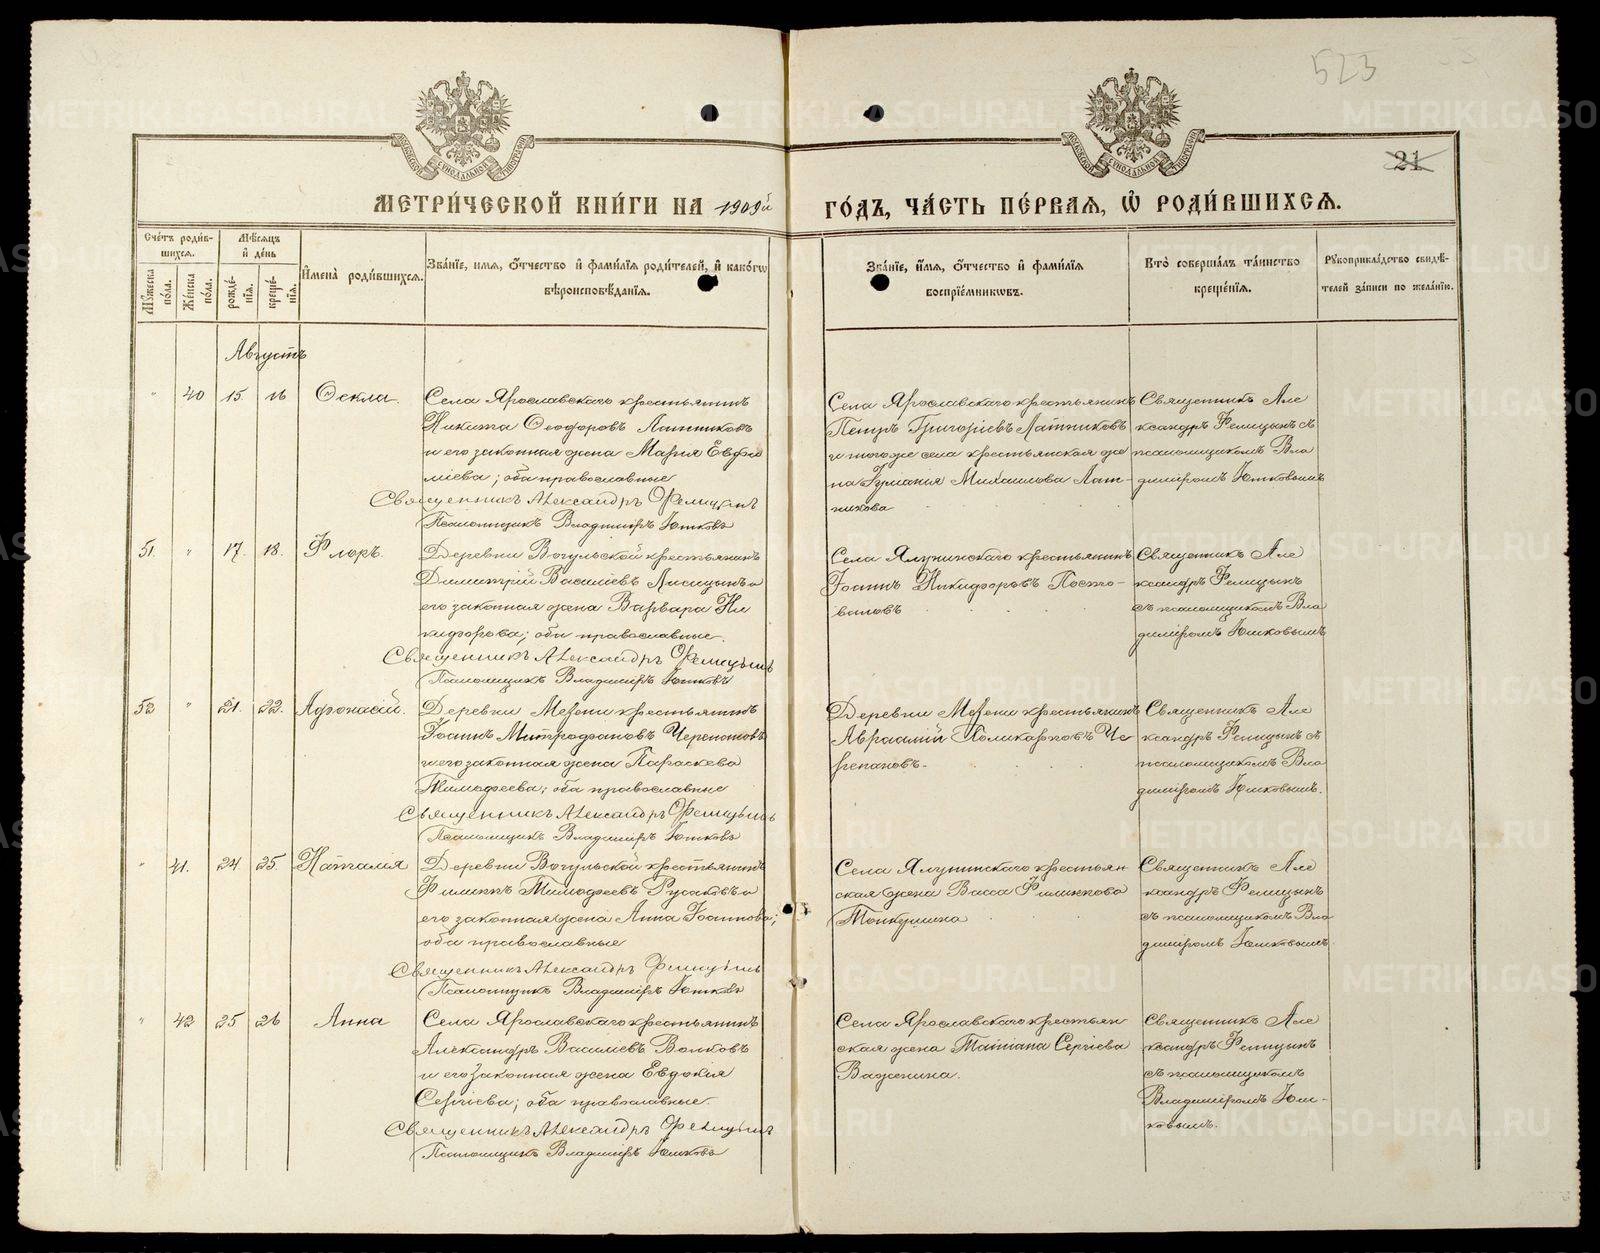 523
21
МЕТРИ́ЧЕСКОЙ КНИ́ГИ НА 1909й
ГО́ДЪ, ЧА́СТЬ ПЕ́РВАЯ, Ѡ РОДИ́ВШИХСЯ.
Сче́тъ роди́в-
шихся.
Мꙋ́жеска по́ла.
Же́нска по́ла.
Мѣ́сяцъ
и де́нь
рожде́-
нїя.
креще́-
нїя.
И́мена̀ роди́вшихся.
Зва́нїе, и́мя, ѻ́тчество и фами́лїя роди́телей, и како́гѡ
вѣроисповѣ́данїя.
Зва́нїе, и́мя, ѻ́тчество и фами́лїя
воспрїе́мникѡвъ.
Кто̀ соверша́лъ та́инство
креще́нїя.
Рꙋкоприкла́дство свидѣ́-
телей за́писи по жела́нїю.
Августъ
" 40 15. 16 Ѳекла.
Села Ярославскаго крестьянинъ
Никита Ѳеодоровъ Латниковъ
и его законная жена Марія Евфи
міева; оба православные
Священникъ Александръ Фелицынъ
Псаломщикъ Владиміръ Юшковъ
Села Ярославскаго крестьянинъ
Петръ Григоріевъ Латниковъ
и тогоже села крестьянская же
на Іуліанія Михаилова Лат-
никова
Священникъ Але
ксандръ Фелицынъ съ
псаломщикомъ Вла
диміромъ Юшковымъ
51. " 17. 18. Флоръ.
Деревни Вогульской крестьянинъ
Димитрій Василіевъ Лисицынъ и
его законная жена Варвара Ни
кифорова; оба православные.
Священникъ Александръ Фелицынъ
Псаломщикъ Владиміръ Юшковъ
Села Ялунинскаго крестьянинъ
Іоаннъ Никифоровъ Посто-
валовъ
Священникъ Але
ксандръ Фелицынъ
съ псаломщикомъ Вла
диміромъ Юшковымъ
52 " 21. 22. Афонасій.
Деревни Мезени крестьянинъ
Іоаннъ Митрофановъ Черепановъ
и его законная жена Параскева
Тимофеева; оба православные
Священникъ Александръ Фелицынъ
Псаломщикъ Владиміръ Юшковъ
Деревни Мезени крестьянинъ
Авраамій Поликарповъ Че
репановъ.
Священникъ Але
ксандръ Фелицынъ съ
псаломщикомъ Вла
диміромъ Юшковымъ.
" 41. 24. 25. Наталія
Деревни Вогульской крестьянинъ
Филиппъ Тимофеевъ Русаковъ и
его законная жена Анна Іоаннова;
оба православные
Священникъ Александръ Фелицынъ
Псаломщикъ Владиміръ Юшковъ
Села Ялунинскаго крестьян
ская жена Васса Филиппова
Тонкушина
Священникъ Але
ксандръ Фелицынъ
съ псаломщикомъ Вла
диміромъ Юшковымъ
" 42 25 26 Анна
Села Ярославскаго крестьянинъ
Александръ Василіевъ Волковъ
и его законная жена Евдокия
Сергіева; оба православные.
Священникъ Александръ Фелицынъ
Псаломщикъ Владиміръ Юшковъ
Села Ярославскаго крестьян
ская жена Татіана Сергіева
Важенина.
Священникъ Але
ксандръ Фелицынъ
съ псаломщикомъ
Владиміромъ Юш-
ковымъ.
METRIKI.GASO-URAL.RU